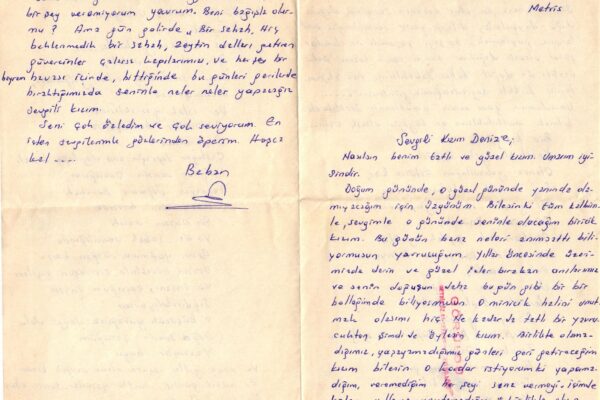 bir şey veremiyorum yavrum. Beni bağışla olur
mu? Ama gün gelirde, Bir sabah, Hiç
beklenmedik bir sabah, zeytin dalları getiren
güvercinler çalarsa kapılarımızı, ve herşey bir
bayram havası içinde, bittiğinde bu günleri geride
bıraktığımızda seninle neler neler yapacağız
sevgili kızım.
Seni çok özledim ve çok seviyorum. En
içten sevgilerimle gözlerinden öperim. Hoşça
kal ....
Baban
Metris
Sevgili Kızım Denize;
Nasılsın benim tatlı ve güzel kızım. Umarım iyi
sindir.
Doğum gününde, o güzel gününde yanında ola
mıyacağım için üzgünüm. Bilesinki tüm kalbim
le, sevgimle o gününde seninle olacağım biricik
kızım. Bu günün bana neleri anımsattı bili
yormusun yavrucuğum. Yıllar öncesinde üzeri
mizde derin ve güzel izler bırakan anılarımız
ve senin doğuşun daha bugün gibi bir bir
belleğimde biliyormusun. O minicik halini unut
mak olasımı hiç. Ne kadar da tatlı bir yavru
cuktun. Şimdi de öylesin kızım. Birlikte olama
dığımız, yaşıyamadığımız günleri geri getireceğim
kızım bilesin. O kadar istiyorumki yapama
dığım, veremediğim her şeyi sana vermeyi. içimde